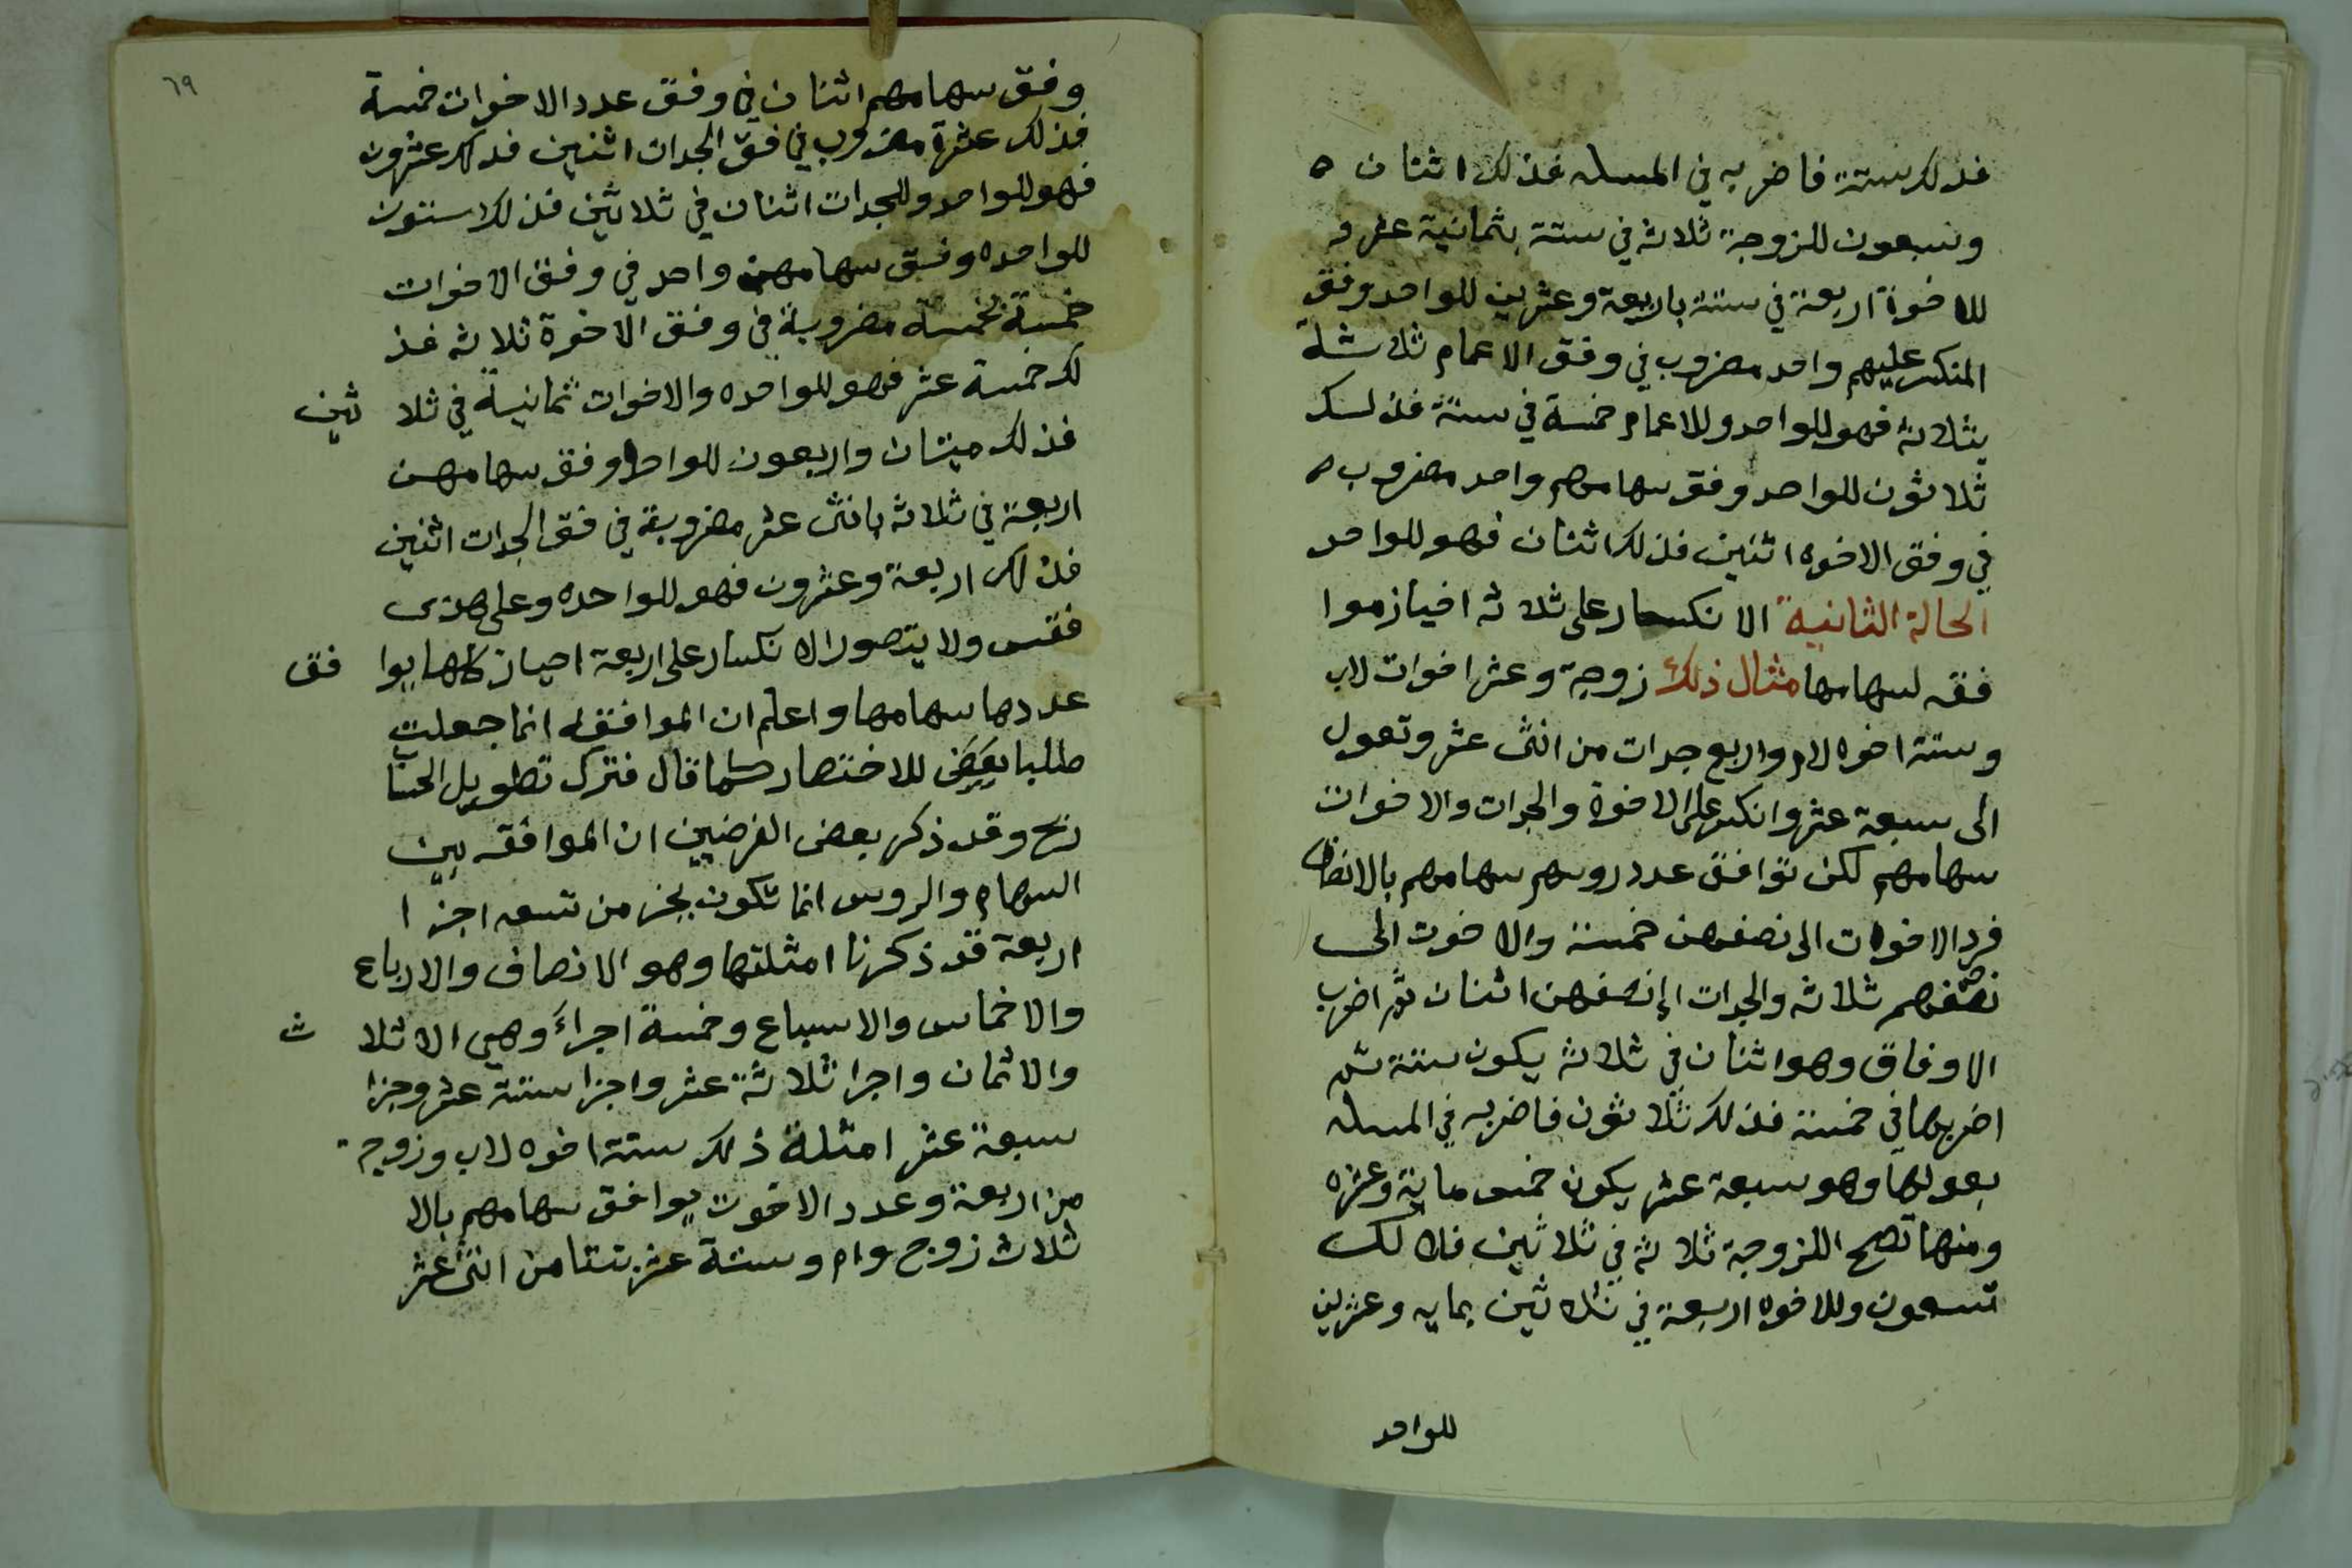 فذلك ستة فاضربه في المسله فذلك اثنان ه
وسبعون للزوجة ثلاثه في ستة بثمانية عشر و
للاخوة اربعة في ستة باربعة وعشرين للواحد وفق
المنكسر عليهم واحد مضروب في وفق الاعمام ثلاثة
بثلاثة فهو للواحد وللاعمام خمسة في ستة فذلك
ثلاثون للواحد وفق سهامهم واحد مضروب ه
في وفق الاخوه اثنين فذلك اثنان فهو للواحد
الحالة الثانية الانكسار على ثلاثه احياز موا
فقه لسهامها مثال ذلك زوجة وعشر اخوات لاب
وستة اخوه لام واربع جدات من اثنى عشر وتعول
الى سبعة عشر وانكسر على الاخوة والجدات والاخوات
سهامهم لكن توافق عدد روسهم سهامهم بالانصاف
فرد الاخوات الى نصفهن خمسة والاخوت الى
نصفهم ثلاثه والجدات الى نصفهن اثنان ثم اضرب
الاوفاق وهو اثنان في ثلاثه يكون ستة ثم
اضربها في خمسة فذلك ثلاثون فاضربه في المسله
بعولها وهو سبعة عشر يكون خمس ماية وعشره
ومنها تصح للزوجة ثلاثة في ثلاثين فذلك
تسعون وللاخوه اربعة في ثلاثين بمايه وعشرين
للواحد
٦٩
وفق سهامهم اثنان في وفق عدد الاخوات خمسة
فذلك عشرة مضروب في فق الجدات اثنين فذلك عشرون
فهو للواحد وللجدات اثنان في ثلاثين فذلك ستون
للواحده وفق سهامهن واحد في وفق الاخوات
خمسة بخمسه مضروبة في وفق الاخوة ثلاثه فذ
لك خمسة عشر فهو للواحده والاخوات ثمانية في ثلا ثين
فذلك ميتان واربعون للواحده وفق سهامهن
اربعة في ثلاثه باثنى عشر مضروبة في فق الجدات اثنين
فذلك اربعة وعشرون فهو للواحده وعلى هذى
فقس ولا يتصور الانكسار على اربعة احياز كلها يوا فق
عددها سهامها واعلم ان الموافقه انما جعلت
طلبا للاختصار كما قال فترك تطويل الحساب
ربح وقد ذكر بعض الفرضيين ان الموافقه بين
السهام والروس انما تكون بجز من تسعه اجزا
اربعة قد ذكرنا امثلتها وهو الانصاف والارباع
والاخماس والاسباع وخمسة اجزاء وهي الاثلا ث
والاثمان واجزا ثلاثة عشر واجزا ستة عشر وجزا
سبعة عشر امثلة ذلك ستة اخوه لاب وزوجة
من اربعة وعدد الاخوت يوافق سهامهم بالا
ثلاث زوج وام وستة عشر بنتا من اثنى عشر